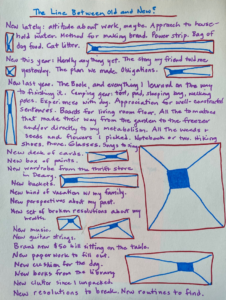 The Line Between Old and New?
New lately: attitude about work, maybe. Approach to house-
hold water. Method for making bread. Power strip. Bag of
dog food. Cat litter.
New this year: Hardly anything yet. The story my friend told me
yesterday. The plan we made. Obligations.
New last year: The Book, and everything I learned on the way
to finishing it.
pots. Experiments with dog. Appreciation for well-constructed
sentences. Boards for living room floor. All the tomatoes
that made their way from the garden to the freezer
and/or directly to my metabolism. All the weeds +
seeds and flowers I picked. Notebook or two. Hiking
shoes. Phone. Glasses.
New deck of cards.
New box of paints.
New wardrobe from the thrift store
in Deary.
New buckets.
New kind of vacation w/ my family.
New perspectives about my past.
New set of broken resolutions about my
health.
New music.
New guitar strings.
Brand new $50 bill sitting on the table.
New paperwork to fill out.
New cushion for the dog.
New books from the library.
New clutter since I unpacked.
New resolutions to break. New routines to find.